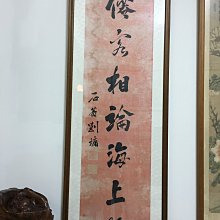 客相論海上
石菴劉墉